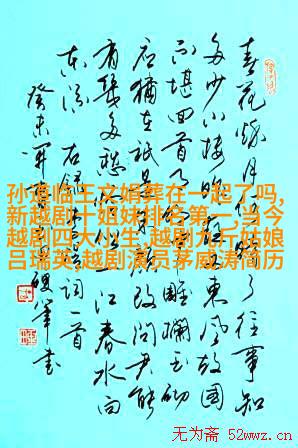 春花秋月了往事知
多少小楼昨夜又东风故国
不堪回首雕欄玉砌
应犹在只是改问君能
有幾多愁一江春水向
东流 右录词一首
癸未硬筆书
孙道临王文娟葬在一起了吗,
新越剧十姐妹排名第一,当今
越剧四大小生,越剧九斤姑娘
吕瑞英,越剧演员茅威涛简历
无为斋 52wwz.cn